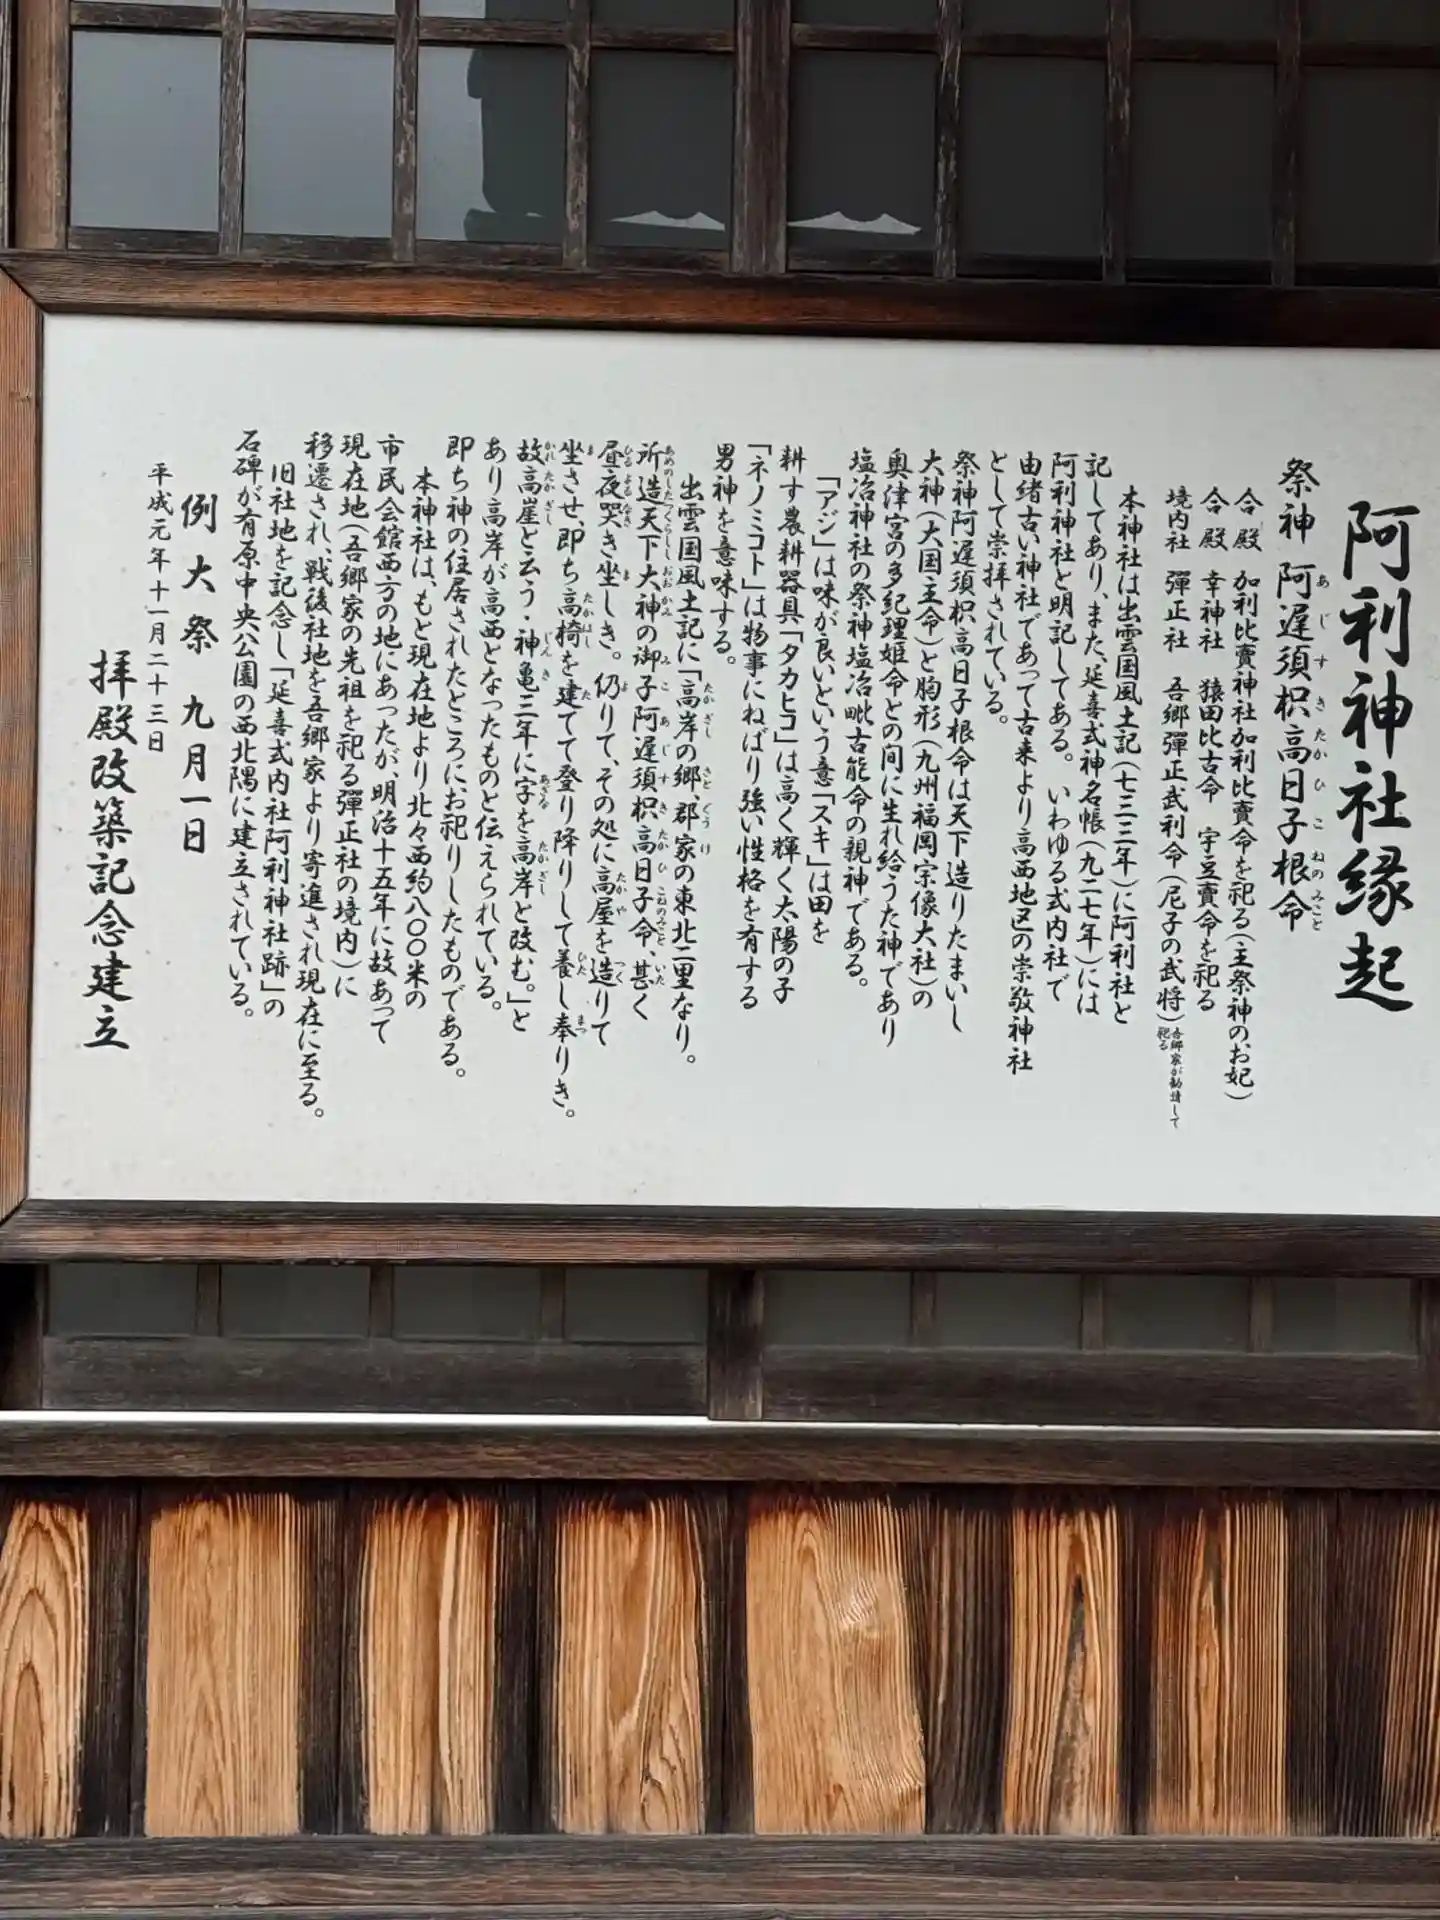 阿利神社縁起
祭神 阿遅須枳高日子根命
あじすきたかひこねのみこと
合殿 加利比賣神社加利比賣命を祀る(主祭神のお妃)
合殿 幸神社 猿田比古命 宇豆賣命を祀る
境内社 彈正社 吾郷彈正武利命(尼子の武将)吾郷家が勧請して祀る
本神社は出雲国風土記(七三三年)に阿利社と
記してあり、また、延喜式神名帳(九二七年)には
阿利神社と明記してある。いわゆる式内社で
由緒古い神社であって古来より高西地区の崇敬神社
として崇拝されている。
祭神阿遅須枳高日子根命は天下造りたまいし
大神(大国主命)と胸形(九州福岡宗像大社)の
奥津宮の多紀理姫命との間に生れ給うた神であり
塩冶神社の祭神塩冶毗古能命の親神である。
「アジ」は味が良いという意「スキ」は田を
耕す農耕器具「タカヒコ」は高く輝く太陽の子
「ネノミコト」は物事にねばり強い性格を有する
男神を意味する。
出雲国風土記に「高岸の郷、郡家の東北二里なり。
たかぎし さと ぐうけ
所造天下大神の御子阿遅須枳高日子命、甚く
あめのしたつくらしし おおかみ みこ あじすき たかひこねのみこと いた
昼夜哭き坐しき。仍りて、その処に高屋を造りて
ひるよるなき ま よ たかや つく
坐させ、即ち高椅を建てて登り降りして養し奉りき。
ま たかはし た ひた まつ
故高崖と云う・神亀三年に字を高岸と改む。」と
かれ たかぎし じんき あざな たかぎし
あり高岸が高西となったものと伝えられている。
即ち神の住居されたところにお祀りしたものである。
本神社は、もと現在地より北々西約八〇〇米の
市民会館西方の地にあったが、明治十五年に故あって
現在地(吾郷家の先祖を祀る彈正社の境内)に
移遷され、戦後社地を吾郷家より寄進され現在に至る。
旧社地を記念し「延喜式内社阿利神社跡」の
石碑が有原中央公園の西北隅に建立されている。
例大祭 九月一日
平成元年十一月二十三日
拝殿改築記念建立